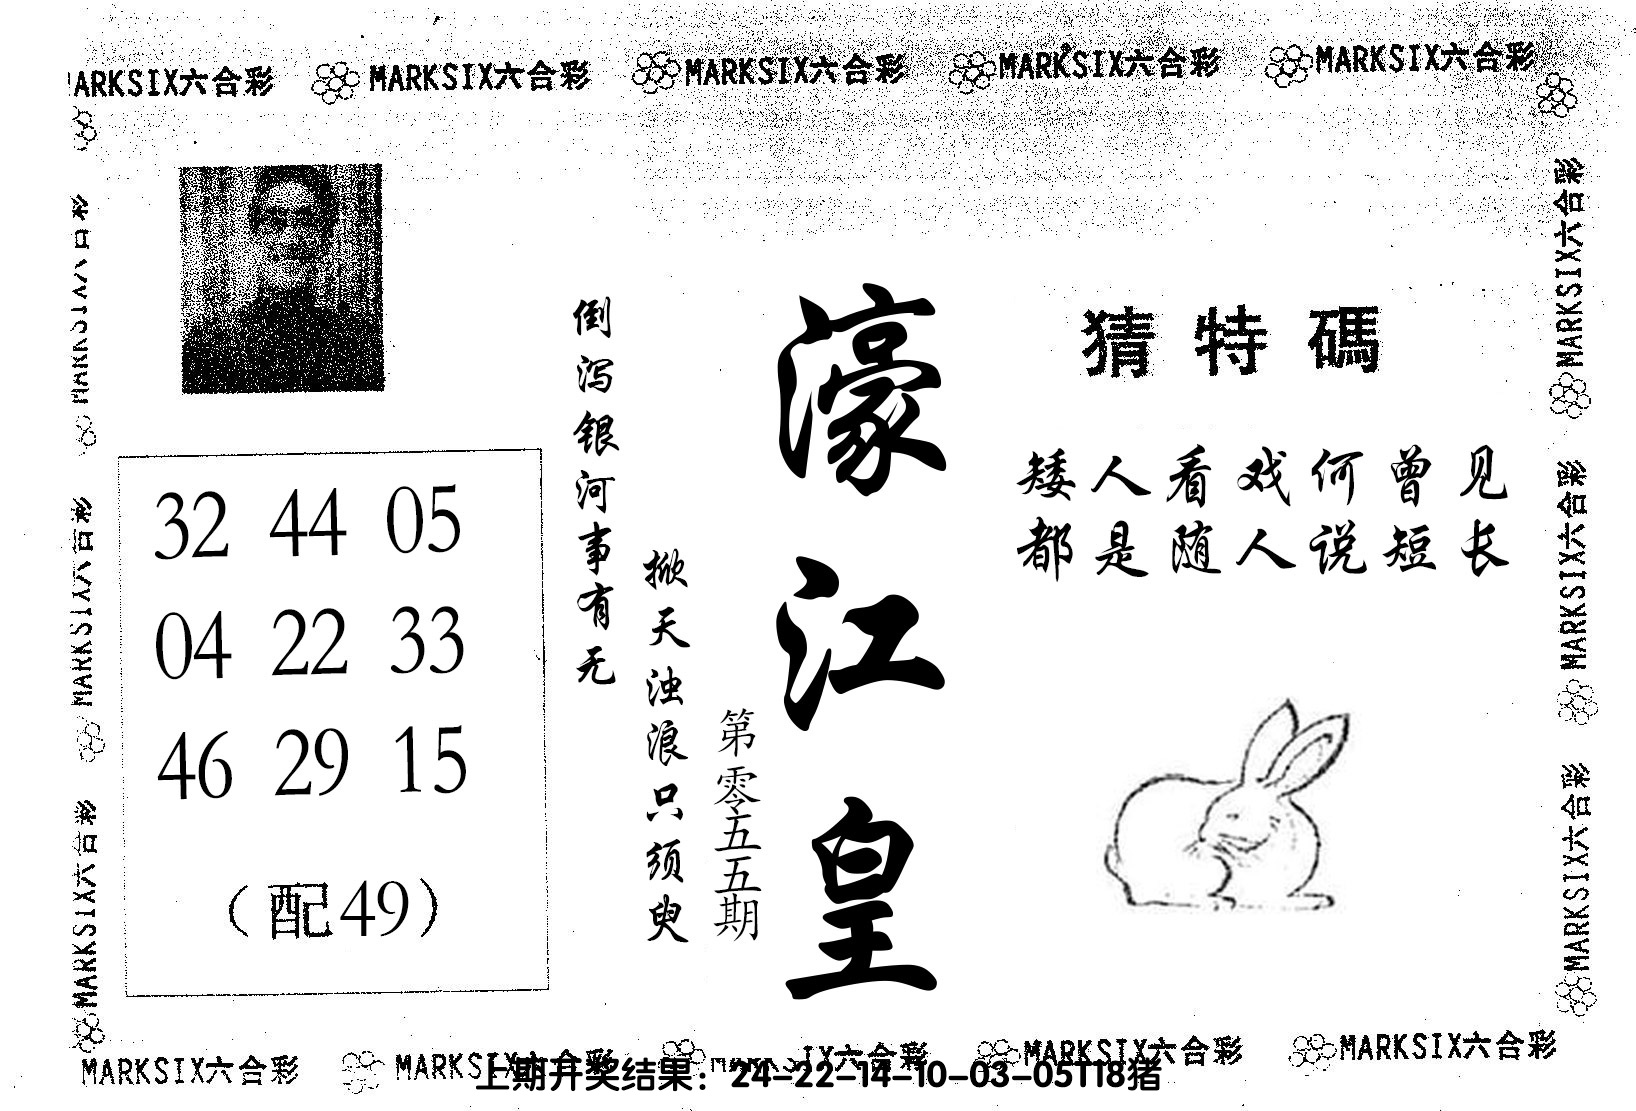 MARKSIX六合彩 MARKSIX六合彩 MARKSIX六合彩 MARKSIX六合彩 MARKSIX六合彩
猜特碼
矮人看戏何曾见
都是随人说短长
濠江皇
第零五五期
掀天浊浪只须臾
倒泻银河事有无
32 44 05
04 22 33
46 29 15
（配49）
MARKSIX六合彩
MARKSIX六合彩
MARKSIX六合彩
MARKSIX六合彩
MARKSIX六合彩
MARKSIX六合彩
MARKSIX六合彩 MARKSIX六合彩 MARKSIX六合彩 MARKSIX六合彩 MARKSIX六合彩
上期开奖结果：24-22-14-10-03-05T18猪